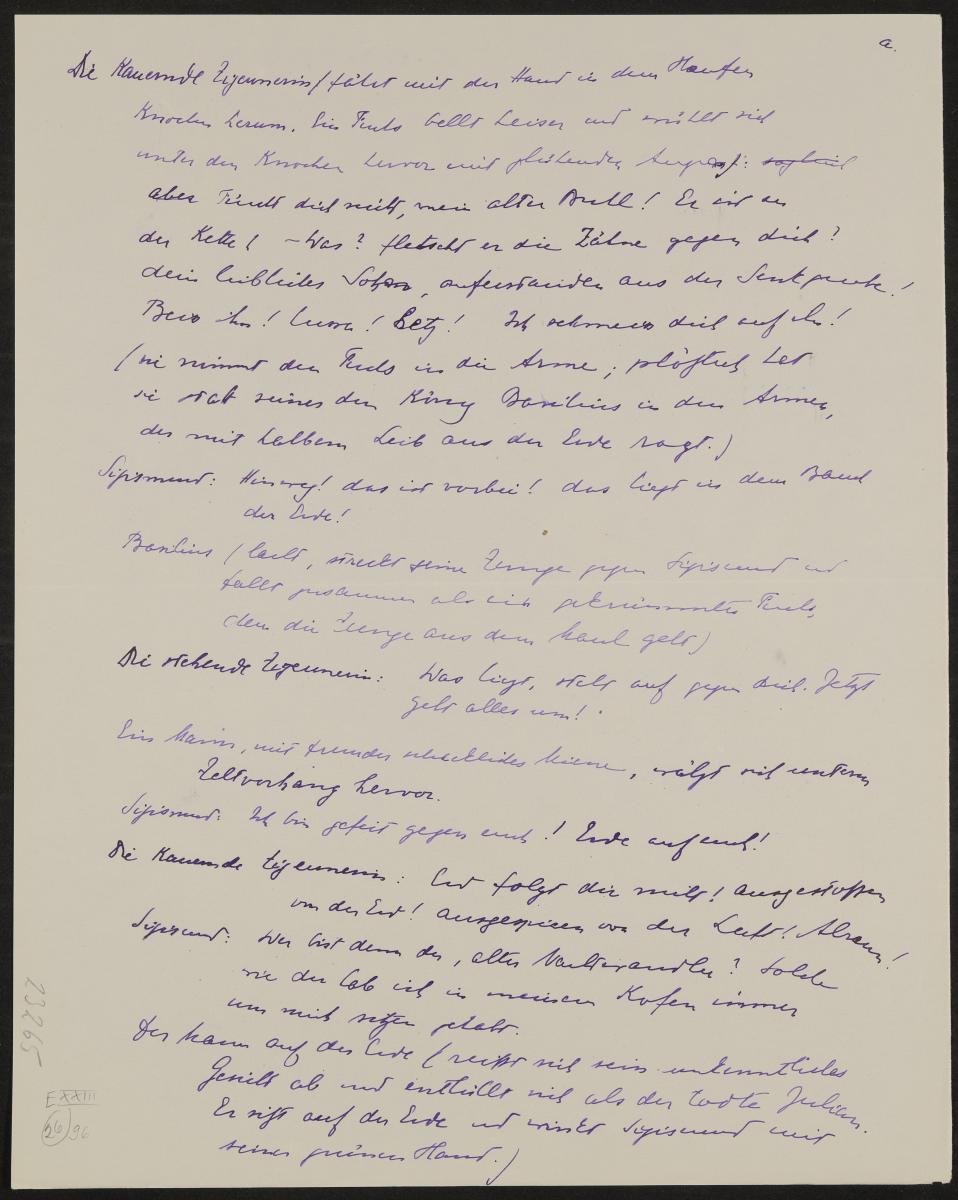 a.
Die Kauernde Zigeunerin (fährt mit der Hand in dem Haufen
Knochen herum. Ein Fuchs bellt heiser und wühlt sich
unter den Knochen hervor mit glühenden Augen):
aber Fürcht dich nicht, mein alter Buhl! Er ist an
der Kette! – Was? fletscht er die Zähne gegen dich?
dein leiblicher Sohn, auferstanden aus der Senkgrube!
Beiss ihn! Hetz! Ich schmeiss dich auf ihn!
(sie nimmt den Fuchs in die Arme; plötzlich hat
sie statt seiner den König Basilius in den Armen,
der mit halbem Leib aus der Erde ragt.)
Sigismund: Hinweg! das ist vorbei! das liegt in dem Bauch
der Erde!
Basilius (lacht, streckt seine Zunge gegen Sigismund und
fällt zusammen als ein gekrümmter Fuchs,
dem die Zunge aus dem Maul geht)
Die stehende Zigeunerin: Was liegt, steht auf gegen dich. Jetzt
geht alles um!
Ein Mann, mit fremder schrecklicher Miene, wälzt sich unterm
Zeltvorhang hervor.
Sigismund: Ich bin gefeit gegen euch! Erde auf euch!
Die Kauernde Zigeunerin: Erd folgt dir nicht! Ausgestossen
von der Erd! Ausgespieen von der Luft! Alraun!
Sigismund: Wer bist denn du, alter Nachtwandler? Solche
wie du hab ich in meinem Kofen immer
um mich sitzen gehabt.
Der Mann auf der Erde (reisst sich sein unkenntliches
Gesicht ab und enthüllt sich als der todte Julian.
Er sitzt auf der Erde und winkt Sigismund mit
seiner grünen Hand.)
23265
E XXIII
26
96